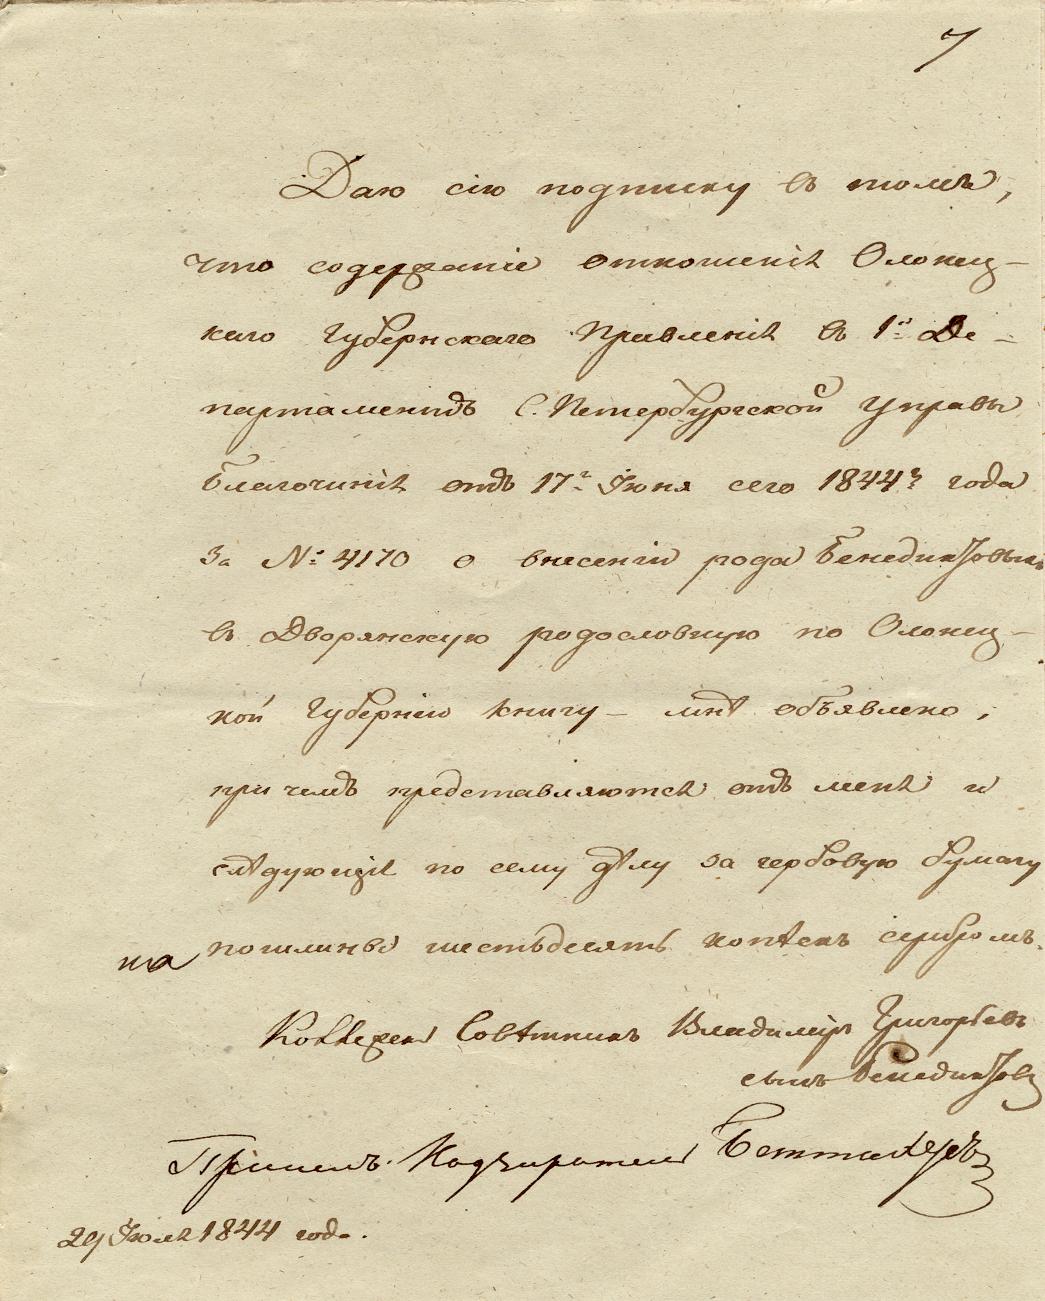 7
Даю сію подписку въ томъ,
что содержаніе отношенія Олонец-
каго Губернскаго Правленія въ 1й Де-
партаментъ С. Петербургской Управы
Благочинія отъ 17г. Іюня сего 1844г. года
за №: 4170 о внесеніи рода Бенедиктовыхъ
въ Дворянскую родословную по Олонец-
кой Губерніи книгу – мнѣ объявлено,
при чемъ представляются отъ меня и
слѣдующія по сему дѣлу за гербовую бумагу
пошлины шестьдесятъ копѣекъ серебромъ.
Коллежскій Совѣтникъ Владиміръ Григорьевъ
сынъ Бенедиктовъ
Принялъ Надзиратель
29 Іюля 1844 года.